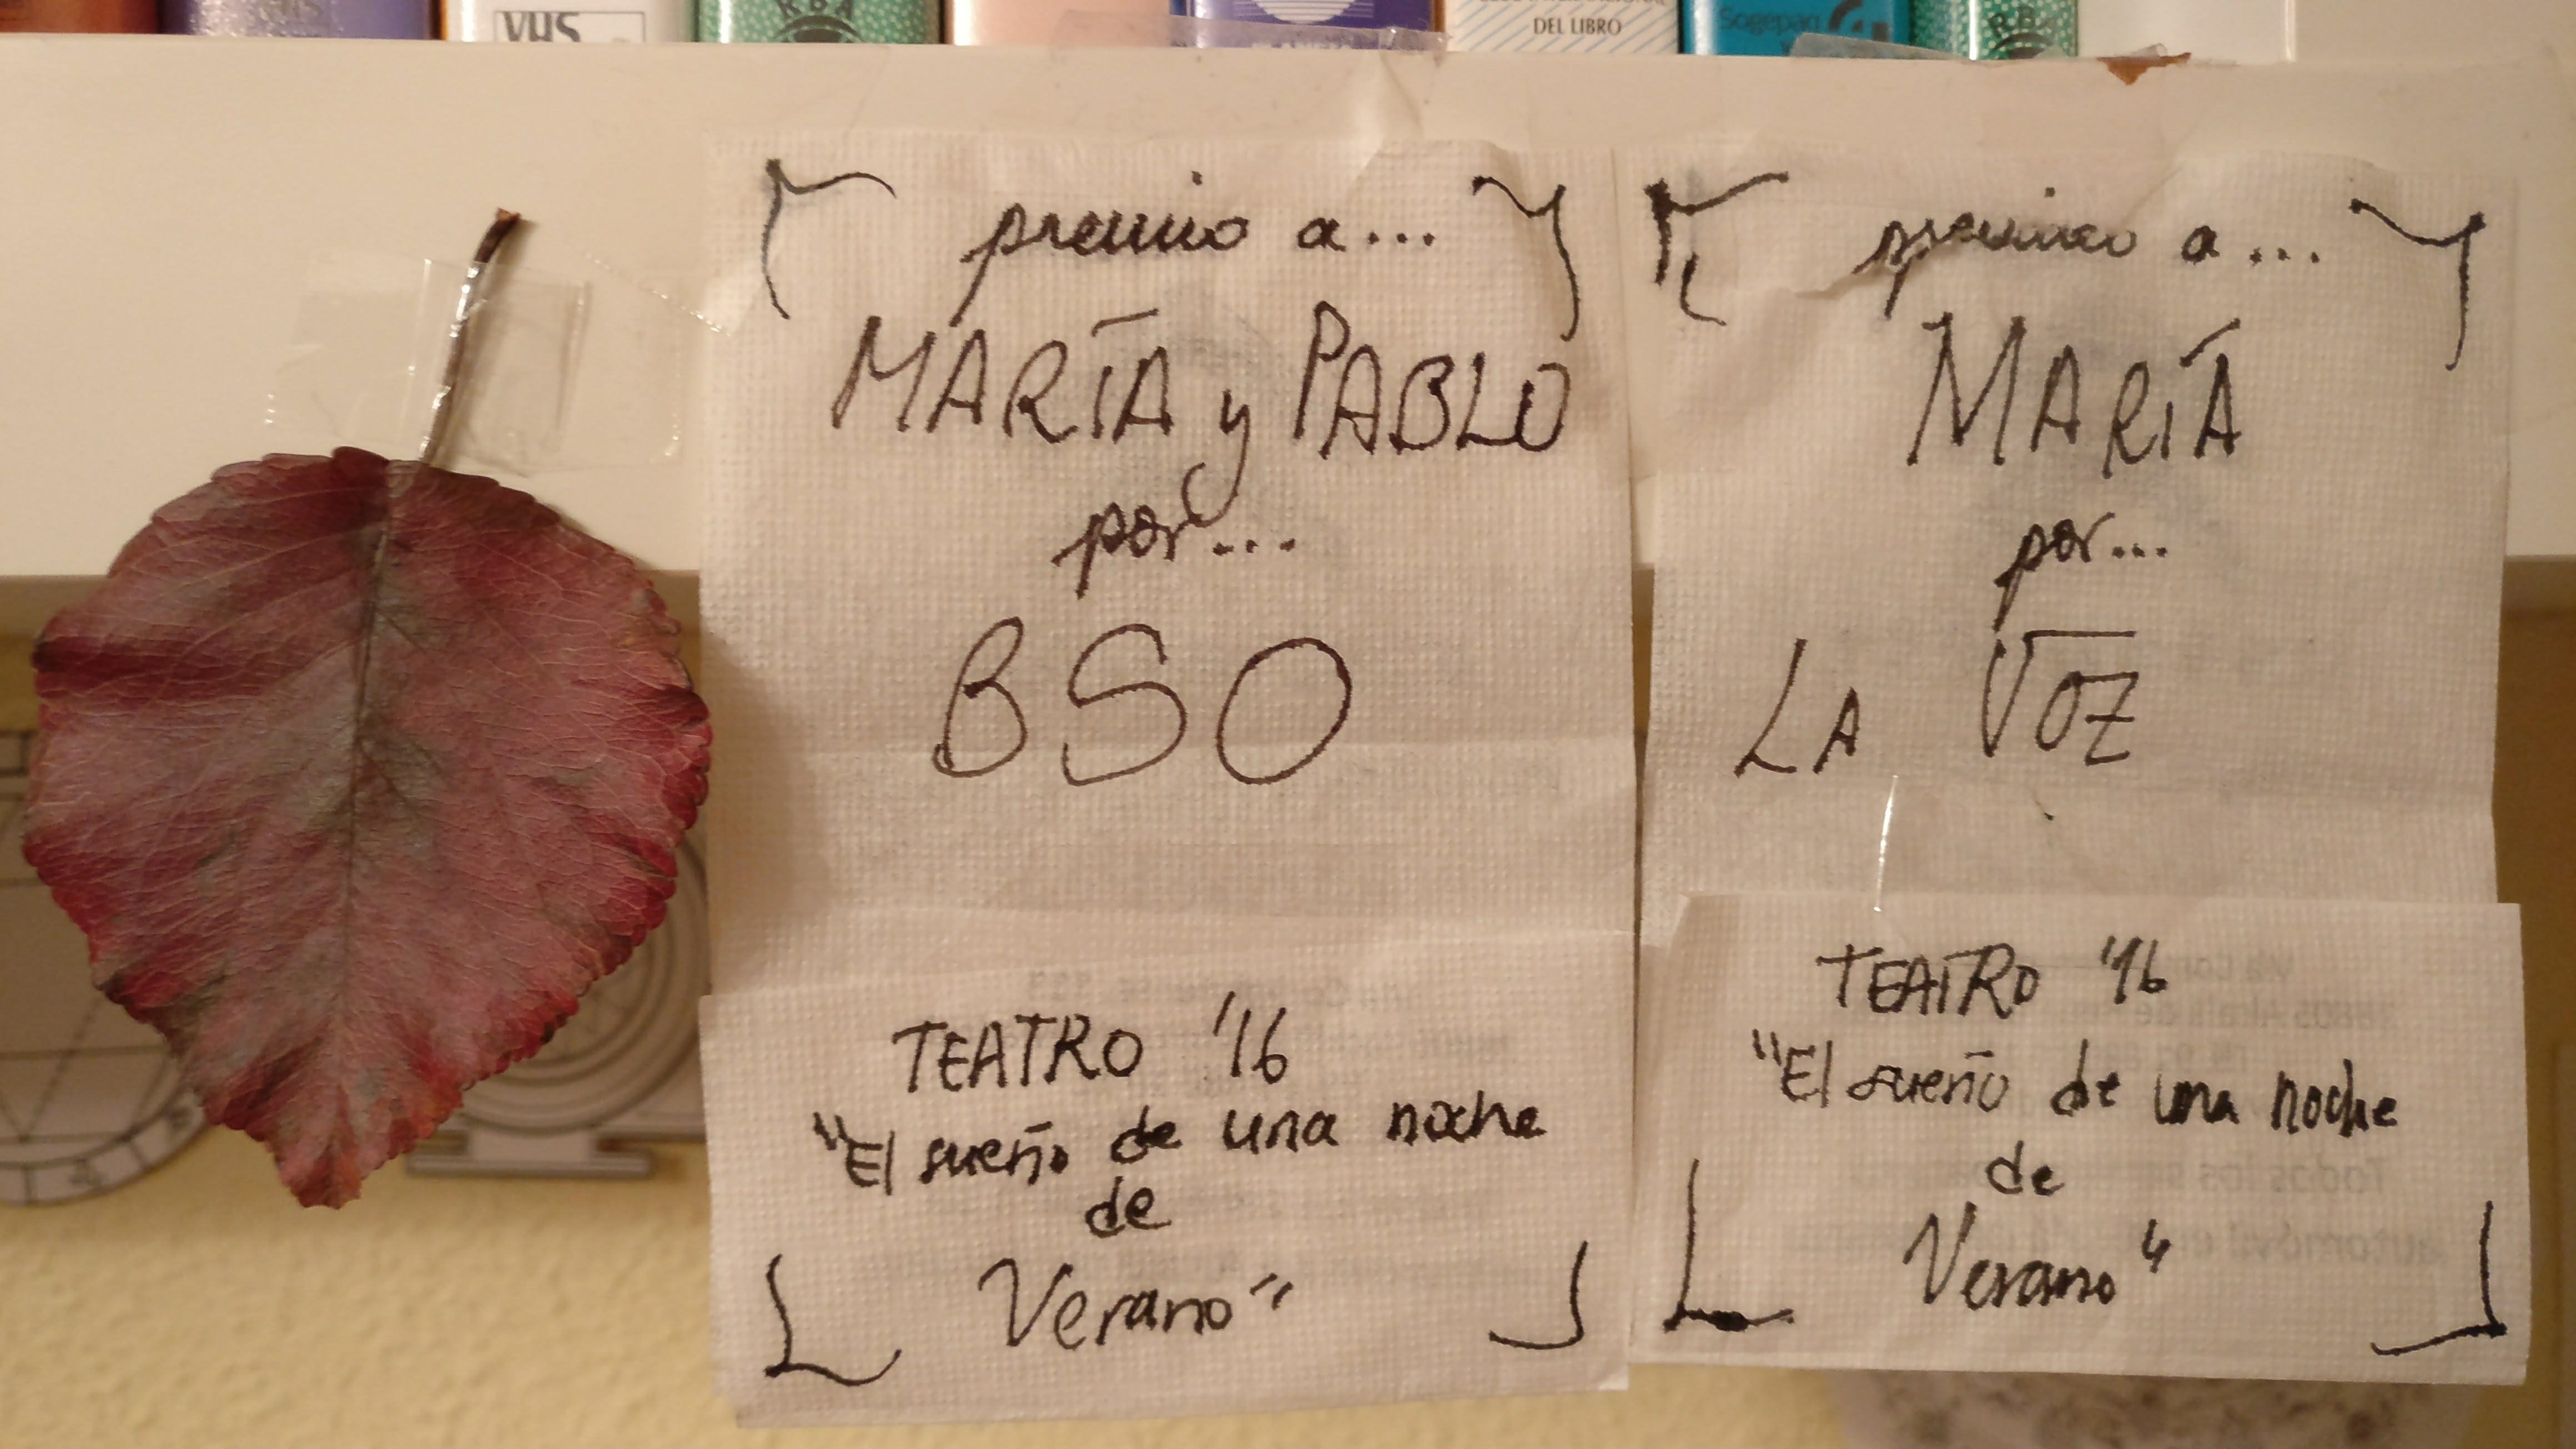 VHS
VHS
RBA
DEL LIBRO
Sogepaq
RBA
premio a...
MARÍA y PABLO
por...
BSO
TEATRO '16
"El sueño de una noche
de
Verano"
premio a...
MARÍA
por...
LA VOZ
TEATRO '16
"El sueño de una noche
de
Verano"